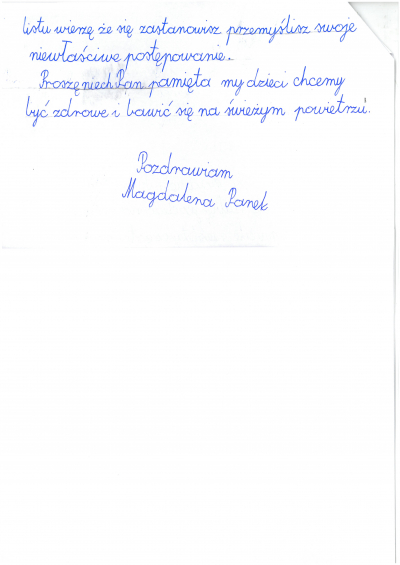 listu wierzę że się zastanowisz przemyślisz swoje
niewłaściwe postępowanie.
Proszę niech Pan pamięta my dzieci chcemy
być zdrowe i bawić się na świeżym powietrzu.
Pozdrawiam
Magdalena Panek